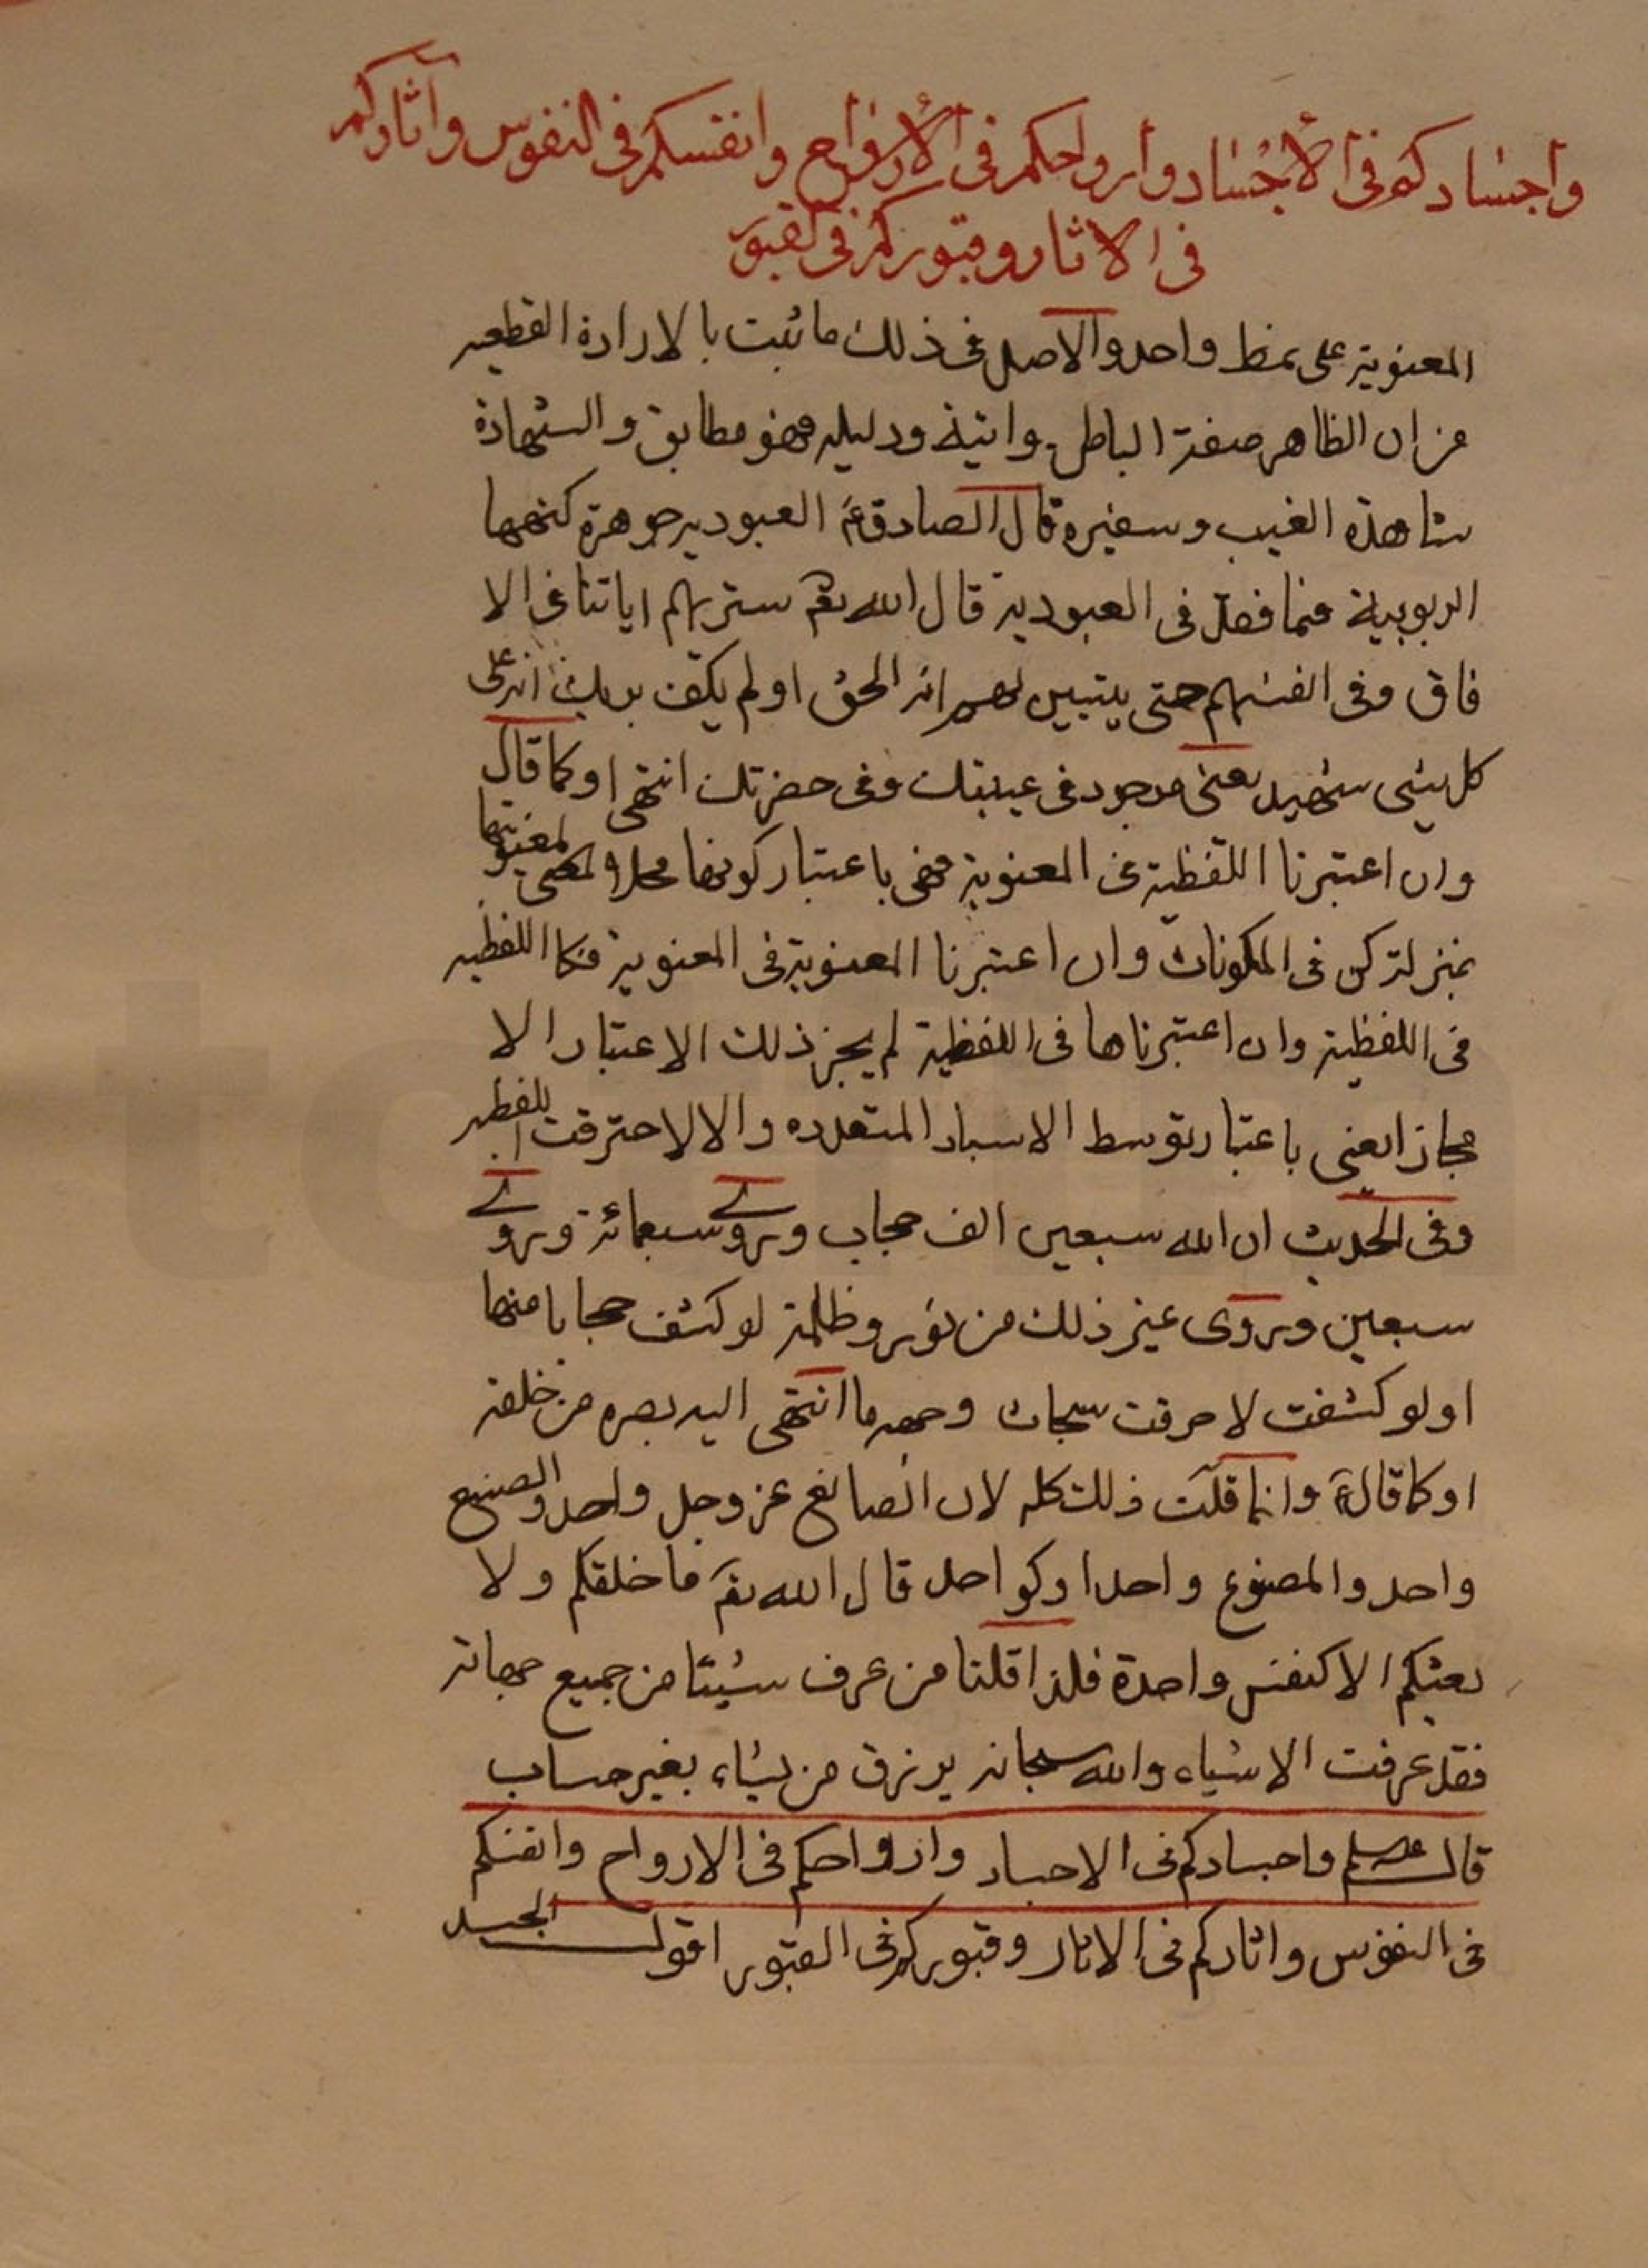 واجسادكم فى الأجساد وارواحكم فى الأرواح وانفسكم فى النفوس وآثاركم
فى الاثار وقبوركم فى القبور
المعنوية على نمط واحد والاصل فى ذلك ما ثبت بالارادة القطعيه
من ان الظاهر صفة الباطن وانيته ودليله فهو مطابق والشهادة
شاهدة الغيب وسفيره قال الصادق ع العبوديه جوهرة كنهها
الربوبية فما فقد فى العبودية قال الله تعم سنريهم اياتنا فى الا
فاق وفى انفسهم حتى يتبين لهم انه الحق اولم يكف بربك انه على
كل شىء شهيد يعنى موجود فى غيبتك وفى حضرتك انتهى او كما قال
وان اعتبرنا اللفظية فى المعنوية فهى باعتبار كونها محلا لمعنويتها
بمنزلة كن فى المكونات وان اعتبرنا المعنوية فى المعنوية فكا اللفظيه
فى اللفظية وان اعتبرناها فى اللفظية لم يجز ذلك الاعتبار الا
مجازا يعنى باعتبار توسط الاسباب المتعدده والا لاحترقت اللفظيه
وفى الحديث ان لله سبعين الف حجاب وروى سبعمائة وروى
سبعين وروى غير ذلك من نور وظلمة لو كشف حجابا منها
او لو كشفت لاحرقت سبحات وجهه ما انتهى اليه بصره من خلقه
او كما قال ع وانما قلت ذلك كله لان الصانع عز وجل واحد والصنيع
واحد والمصنوع واحد او كواحد قال الله تعم ما خلقكم ولا
بعثكم الا كنفس واحدة فلذا قلنا من عرف شيئا من جميع جهاته
فقد عرفت الاشياء والله سبحانه يرزق من يشاء بغير حساب
قال عليه السلم واجسادكم فى الاجساد وارواحكم فى الارواح وانفسكم
فى النفوس واثاركم فى الاثار وقبوركم فى القبور اقول الجسد